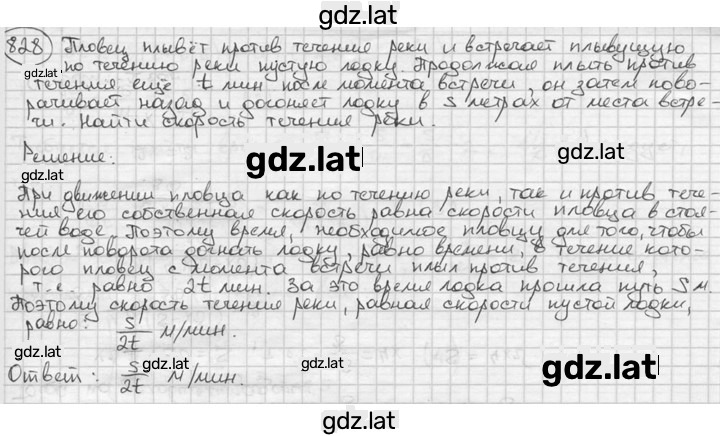 gdz.lat
828 Пловец плывёт против течения реки и встречает плывущую
по течению реки пустую лодку. Продолжая плыть против
gdz.lat
течения ещё t мин после момента встречи, он затем пово-
рачивает назад и догоняет лодку в s метрах от места встре-
чи. Найти скорость течения реки.
Решение:
gdz.lat
gdz.lat
gdz.lat
При движении пловца как по течению реки, так и против тече-
ния его собственная скорость равна скорости пловца в стоя-
чей воде. Поэтому время, необходимое пловцу для того, чтобы
после поворота догнать лодку, равно времени, в течение кото-
рого пловец с момента встречи плыл против течения,
т.е. равно 2t мин. За это время лодка прошла путь S м.
Поэтому скорость течения реки, равная скорости пустой лодки,
равно: s/2t м/мин.
gdz.lat
gdz.lat
gdz.lat
Ответ: s/2t м/мин.
gdz.lat
gdz.lat